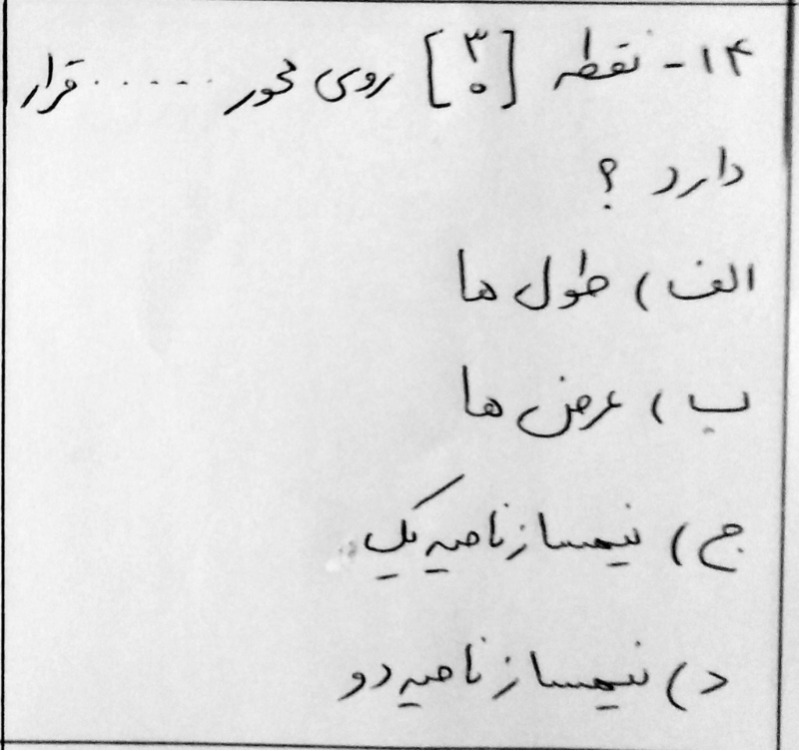 ۱۴- نقطه [۳ ۰] روی محور ...... قرار
دارد ؟
الف) طول ها
ب) عرض ها
ج) نیمساز ناحیه یک
د) نیمساز ناحیه دو